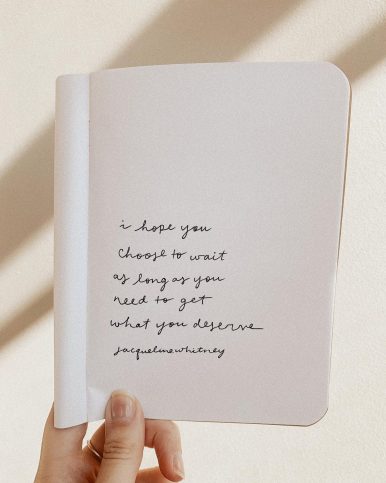 i hope you
choose to wait
as long as you
need to get
what you deserve
jacquelinewhitney